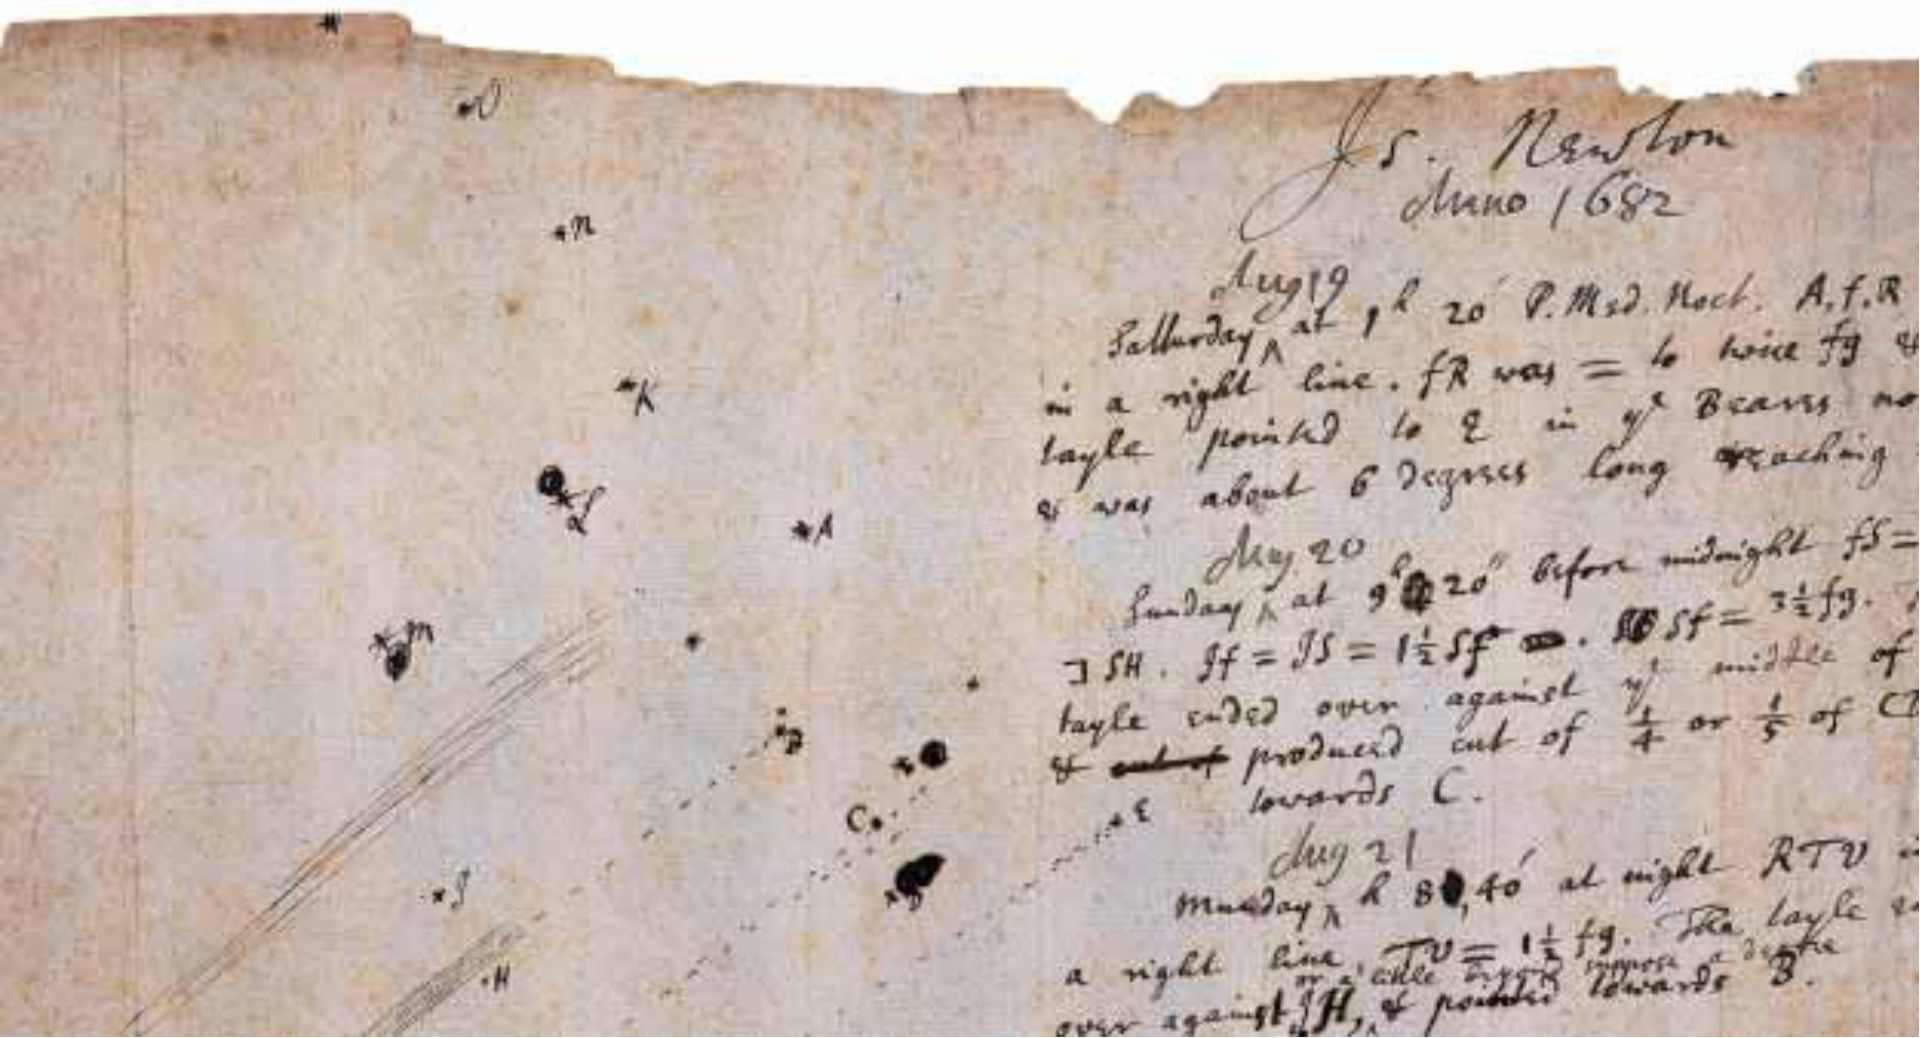 O
n
K
L
A
M
B
C
D
E
J
H
Js. Newton
Anno 1682
Aug 19
Satturday ^ at 1h 20' P. Med. Noct. A, f, R
in a right line. fR was = to twice fg &
tayle pointed to in ye Beares
& was about 6 degrees long reaching
Aug 20
Sunday ^ at 9h 20' before midnight fS =
SH. Jf = JS = 1½ Sf. Sf = 3½ fg.
tayle ended over against ye middle of
& out of produced cut of ¼ or ⅕ of
towards C.
Aug 21
Munday ^ h 8, 40' at night RTV
a right line, TV = 1½ fg. The tayle
or a little beyond suppose a degree
over against JH, & pointed towards B.